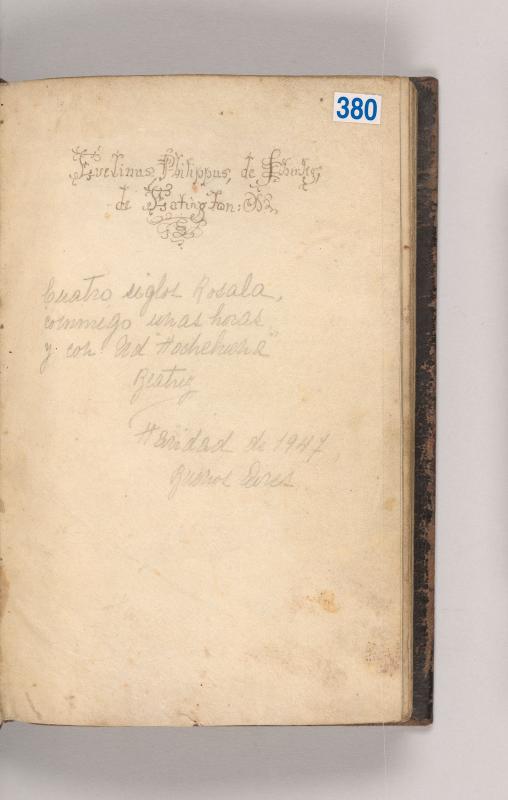 380
Evelinus Philippus, de
de
Cuatro siglos Rosala,
conmigo unas horas
y con Ud
Beatriz
Navidad de 1947,
Buenos Aires